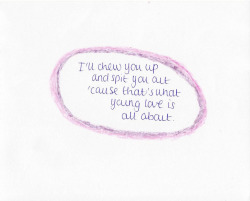 I'll chew you up
and spit you out
'cause that's what
young love is
all about.